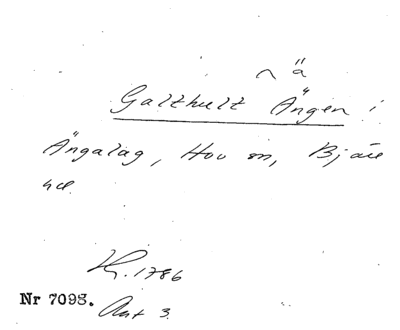 nä
Galthult Ängen i
Ängalag, Hov sn, Bjäre
hd.
Kr. 1786
Nr 7098.
Akt 3.